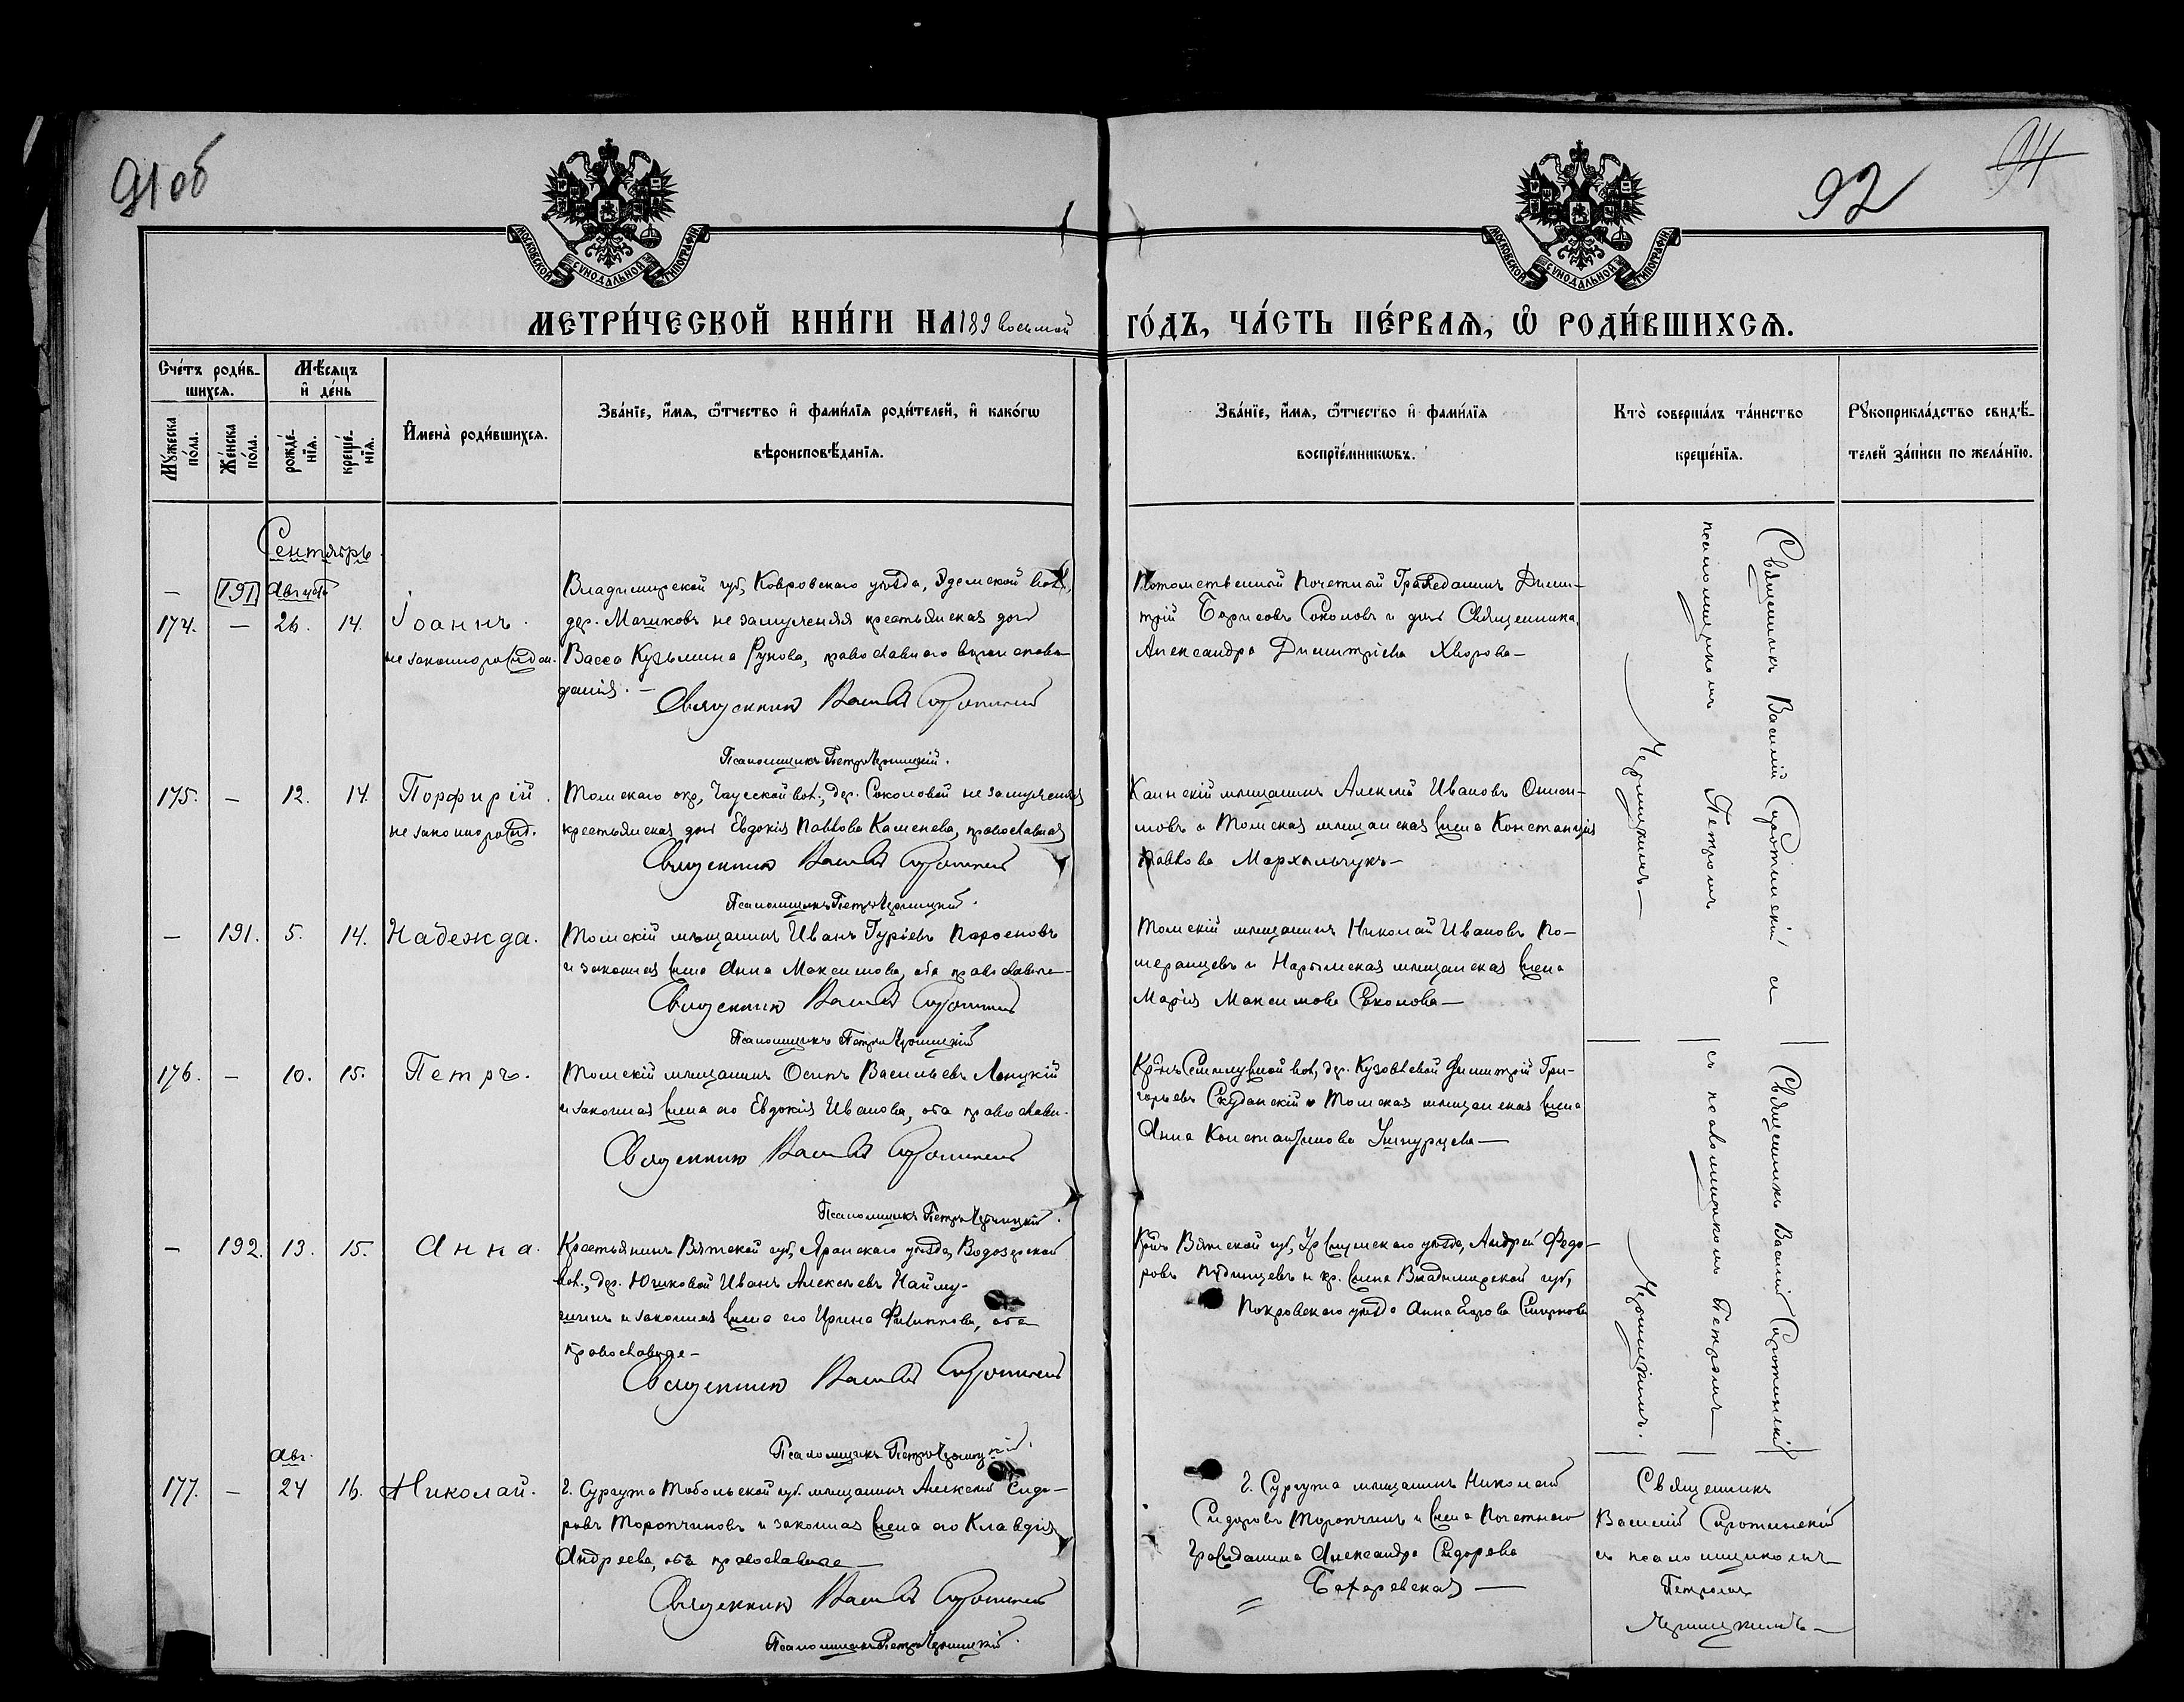 91 об
92
94
МОСКОВСКОЙ СѴНОДАЛЬНОЙ ТИПОГРАФІИ
МОСКОВСКОЙ СѴНОДАЛЬНОЙ ТИПОГРАФІИ
МЕТРИ́ЧЕСКОЙ КНИ́ГИ НА 189 восьмой ГО́ДЪ, ЧА́СТЬ ПЕ́РВАЯ, Ѡ҆ РОДИ́ВШИХСЯ.
Сче́тъ роди́в-
шихся.
Мѣ́сяцъ
и҆ де́нь
Мꙋ́жеска
по́ла.
Же́нска
по́ла.
рожде́-
нїя.
креще́-
нїя.
И҆мена̀ роди́вшихся.
Зва́нїе, и҆́мя, ѻ҆́тчество и҆ фами́лїя роди́телей, и҆ како́гѡ
вѣроисповѣ́данїя.
Зва́нїе, и҆́мя, ѻ҆́тчество и҆ фами́лїя
воспрїе́мникѡвъ.
Кто̀ соверша́лъ та́инство
креще́нїя.
Рꙋкоприкла́дство свидѣ́-
телей за́писи по жела́нїю.
Сентябрь.
— 191 Августа
174. — 26. 14. Іоаннъ.
незаконорожден.
Владимирской губ, Ковровскаго уѣзда, Эдемской вол.,
дер. Машковъ не замужняя крестьянская дочь
Васса Кузьмина Рунова, православнаго вѣроисповѣ-
данія. —
Священникъ Василій Сиротинскій
Псаломщикъ Петръ Черницкій.
Потомственный Почетный Гражданинъ Дими-
трій Борисовъ Соколовъ и дочь Священника,
Александра Димитріева Хворова —
Священникъ Василій Сиротинскій съ
псаломщикомъ Петромъ
Черницкимъ —
175. — 12. 14. Порфирій.
незаконорожд.
Томскаго окр, Чаусской вол., дер. Соколовой не замужняя
крестьянская дочь Евдокія Павлова Каменева, православная
Священникъ Василій Сиротинскій
Псаломщикъ Петръ Черницкій.
Каинскій мѣщанинъ Алексѣй Ивановъ
и Томская мѣщанская жена Констанція
Павлова Мархальчукъ —
— 191. 5. 14. Надежда.
Томскій мѣщанинъ Иванъ Гурьевъ Парѳеновъ
и законная жена Анна Максимова, оба православные —
Священникъ Василій Сиротинскій
Псаломщикъ Петръ Черницкій
Томскій мѣщанинъ Николай Ивановъ По-
меранцевъ и Нарымская мѣщанская жена
Марія Максимова Соколова —
176. — 10. 15. Петръ.
Томскій мѣщанинъ Осипъ Васильевъ Лапицкій
и законная жена его Евдокія Иванова, оба православн.
Священникъ Василій Сиротинскій
Псаломщикъ Петръ Черницкій.
Кр-нъ Семилужной вол, дер. Кузовлевой Димитрій Гри-
горьевъ Скуданскій и Томская мѣщанская жена
Анна Константинова —
Священникъ Василій Сиротинскій
съ псаломщикомъ Петромъ —
Черницкимъ.
— 192. 13. 15. Анна.
Крестьянинъ Вятской губ, Яранскаго уѣзда, Водозерской
вол., дер. Юшковой Иванъ Алексѣевъ Найму-
шинъ и законная жена его Ирина Филиппова, оба
православные —
Священникъ Василій Сиротинскій
Псаломщикъ Петръ Черницкій.
Кр-нъ Вятской губ, Уржумскаго уѣзда, Андрей Ѳедо-
ровъ и кр. жена Владимирской губ,
Покровскаго уѣзда Анна Егорова Смирнова
Авг.
177. — 24 16. Николай.
г. Сургута Тобольской губ. мѣщанинъ Алексѣй Сидо-
ровъ Торопчиновъ и законная жена его Клавдія
Андреева, оба православные —
Священникъ Василій Сиротинскій
Псаломщикъ Петръ Черницкій.
г. Сургута мѣщанинъ Николай
Сидоровъ Торопчинъ и жена Почетнаго
Гражданина Александра Сидорова
Бахаревская —
Священникъ
Василій Сиротинскій
съ псаломщикомъ
Петромъ
Черницкимъ —